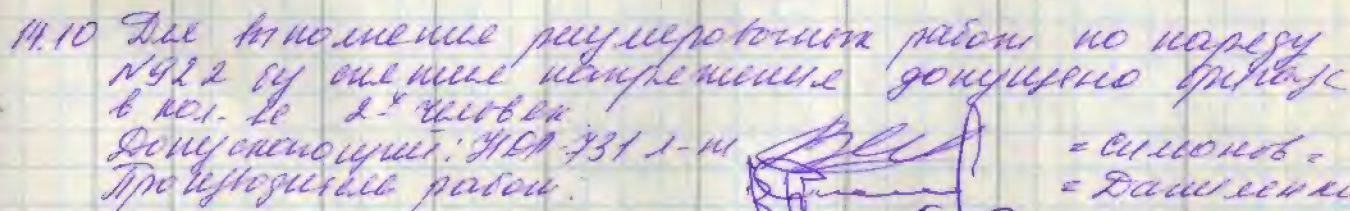 14.10 Для выполнения регулировочных работ по наряду
N922 без снятия напряжения допущена бригада
в кол-ве 2х человек.
Допускающий: л-т =Симонов=
Производитель работ: =Даниленко